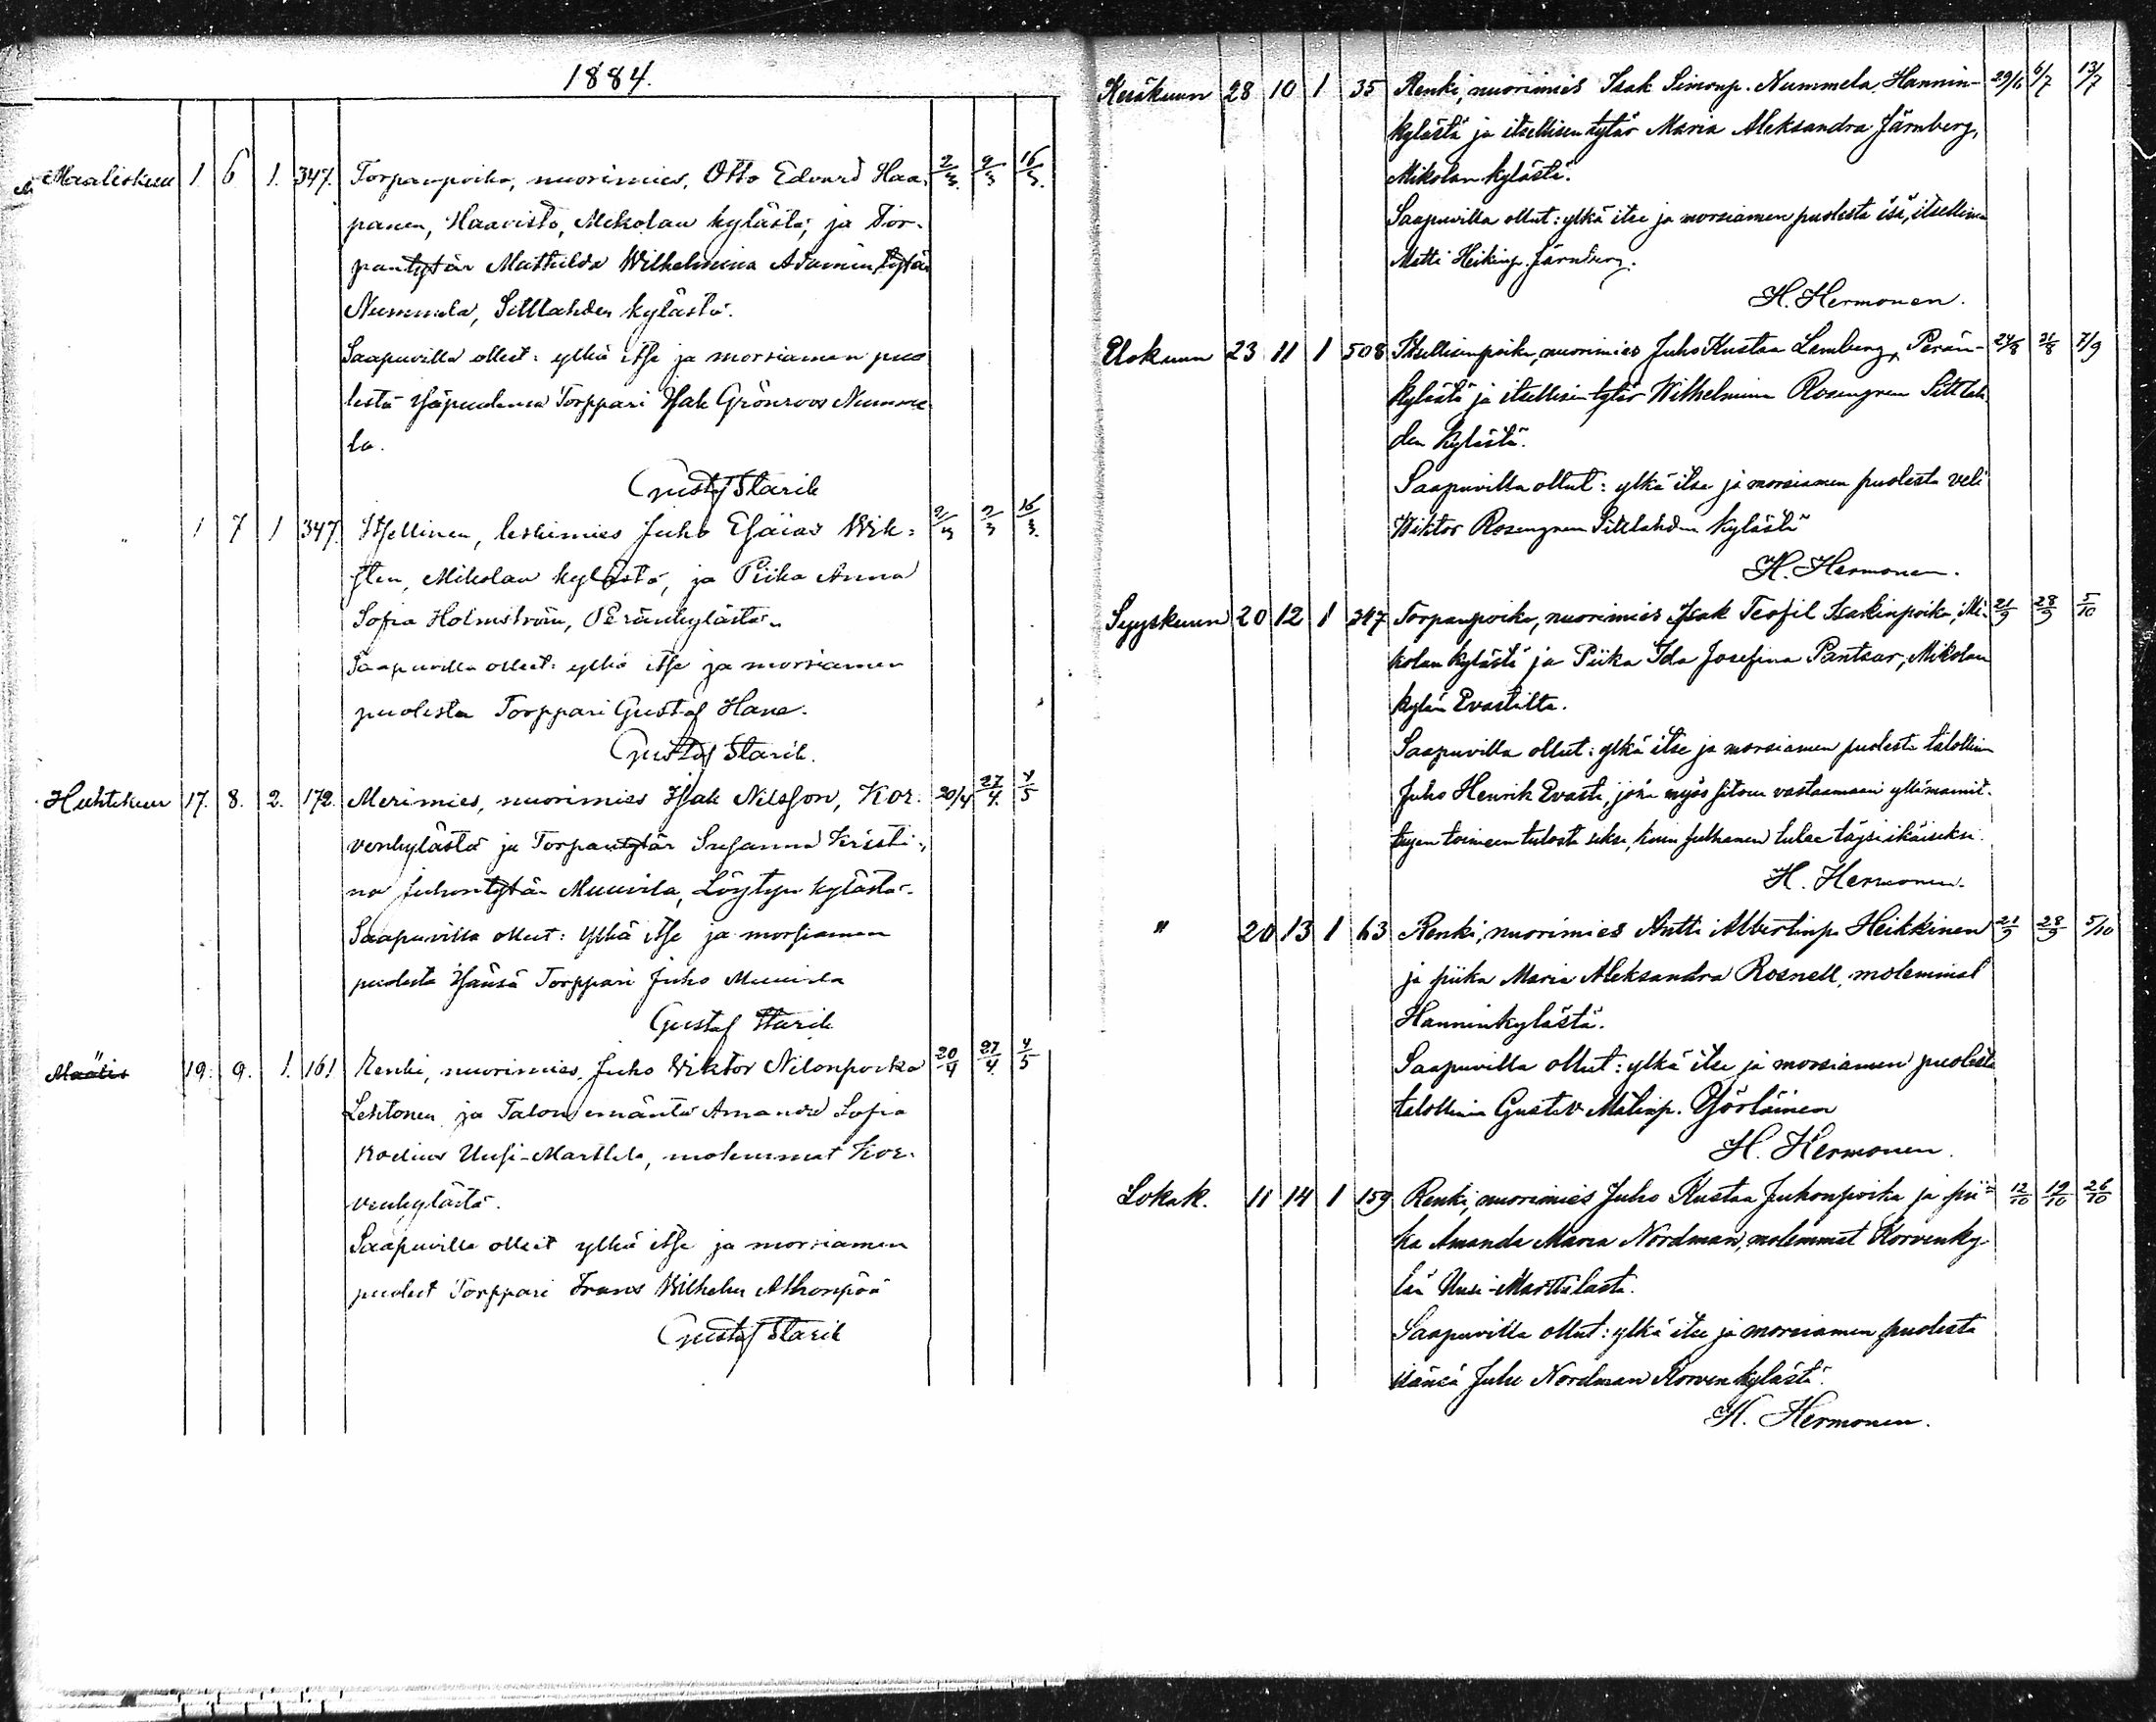 1884.
Maaliskuu 1. 6 1. 347. Torpanpoika, nuorimies, Otto Edvard Haa- 2/3. 9/3 16/3.
panen, Haavisto, Mikolan kylästä, ja Tor-
pantytär Mathilda Wilhelmina Adamintytär
Nummela, Sittlahden kylästä.
Saapuvilla olleet: ylkä itse ja morsiamen puo
lesta Isäpuolensa Torppari Isak Grönroos Numme
la.
Gustaf Starik
" 1 7 1 347. Itsellinen, leskimies Juho Esaias Wik= 2/3 9/3 16/3.
sten, Mikolan kylästä, ja Piika Anna
Sofia Holmström, Peränkylästä.
Saapuvilla olleet: ylkä itse ja morsiamen
puolesta Torppari Gustaf Hane.
Gustaf Starik.
Huhtikuu 17. 8. 2. 172. Merimies, nuorimies Isak Nilsson, Kor- 20/4 27/4. 4/5
venkylästä ja Torpantytär Susanna Kristi-
na Juhontytär Muurila, Löytyn kylästä.
Saapuvilla olleet: Ylkä itse ja morsiamen
puolesta Isänsä Torppari Juho Muurila
Gustaf Starik
Maalis 19. 9. 1. 161 Renki, nuorimies, Juho Wiktor Nilonpoika 20/4 27/4. 4/5
Lehtonen ja Talon emäntä Amanda Sofia
Uusi-Marttila, molemmat Kor-
venkylästä.
Saapuvilla olleet ylkä itse ja morsiamen
puolest Torppari Frans Wilhelm
Gustaf Starik
Kesäkuun 28 10 1 35 Renki, nuorimies Isak Simonp. Nummela, Hannin- 29/6 6/7 13/7
kylästä ja itsellisen tytär Maria Aleksandra Järnberg,
Mikolan kylästä.
Saapuvilla ollut: ylkä itse ja morsiamen puolesta isä, itsellinen
Matti Heikinp. Järnberg.
H. Hermonen.
Elokuun 23 11 1 508 Itsellisenpoika, nuorimies Juho Kustaa Lemberg, Perän- 24/8 31/8 7/9
kylästä ja itsellisen tytär Wilhelmina Rosengren Sittlah
den kylästä.
Saapuvilla ollut: ylkä itse ja morsiamen puolesta veli
Wiktor Rosengren Sittlahden kylästä
H. Hermonen.
Syyskuun 20 12 1 347 Torpanpoika, nuorimies Isak Teofil Isakinpoika, Mi- 21/9 28/9 5/10
kolan kylästä ja Piika Ida Josefina Pantsar, Mikolan
kylän Evastilta.
Saapuvilla ollut: ylkä itse ja morsiamen puolesta talollinen
Juho Henrik Evasti, joka myös sitoutu vastaamaan yllämainit-
tujen toimeen tulosta siksi, kuin sulhanen tulee täysi ikäiseksi.
H. Hermonen.
" 20 13 1 63 Renki, nuorimies Antti Albertinp. Heikkinen 21/9 28/9 5/10
ja piika Maria Aleksandra Rosnell, molemmat
Hanninkylästä.
Saapuvilla ollut: ylkä itse ja morsiamen puolesta
talollinen Gustav Matinp. Yörläinen
H. Hermonen.
Lokak. 11 14 1 159 Renki, nuorimies Juho Kustaa Juhonpoika ja pii= 12/10 19/10 26/10
ka Amanda Maria Nordman, molemmat Korvenky-
län Uusi-Marttilasta.
Saapuvilla ollut: ylkä itse ja morsiamen puolesta
isänsä Juho Nordman Korvenkylästä.
H. Hermonen.